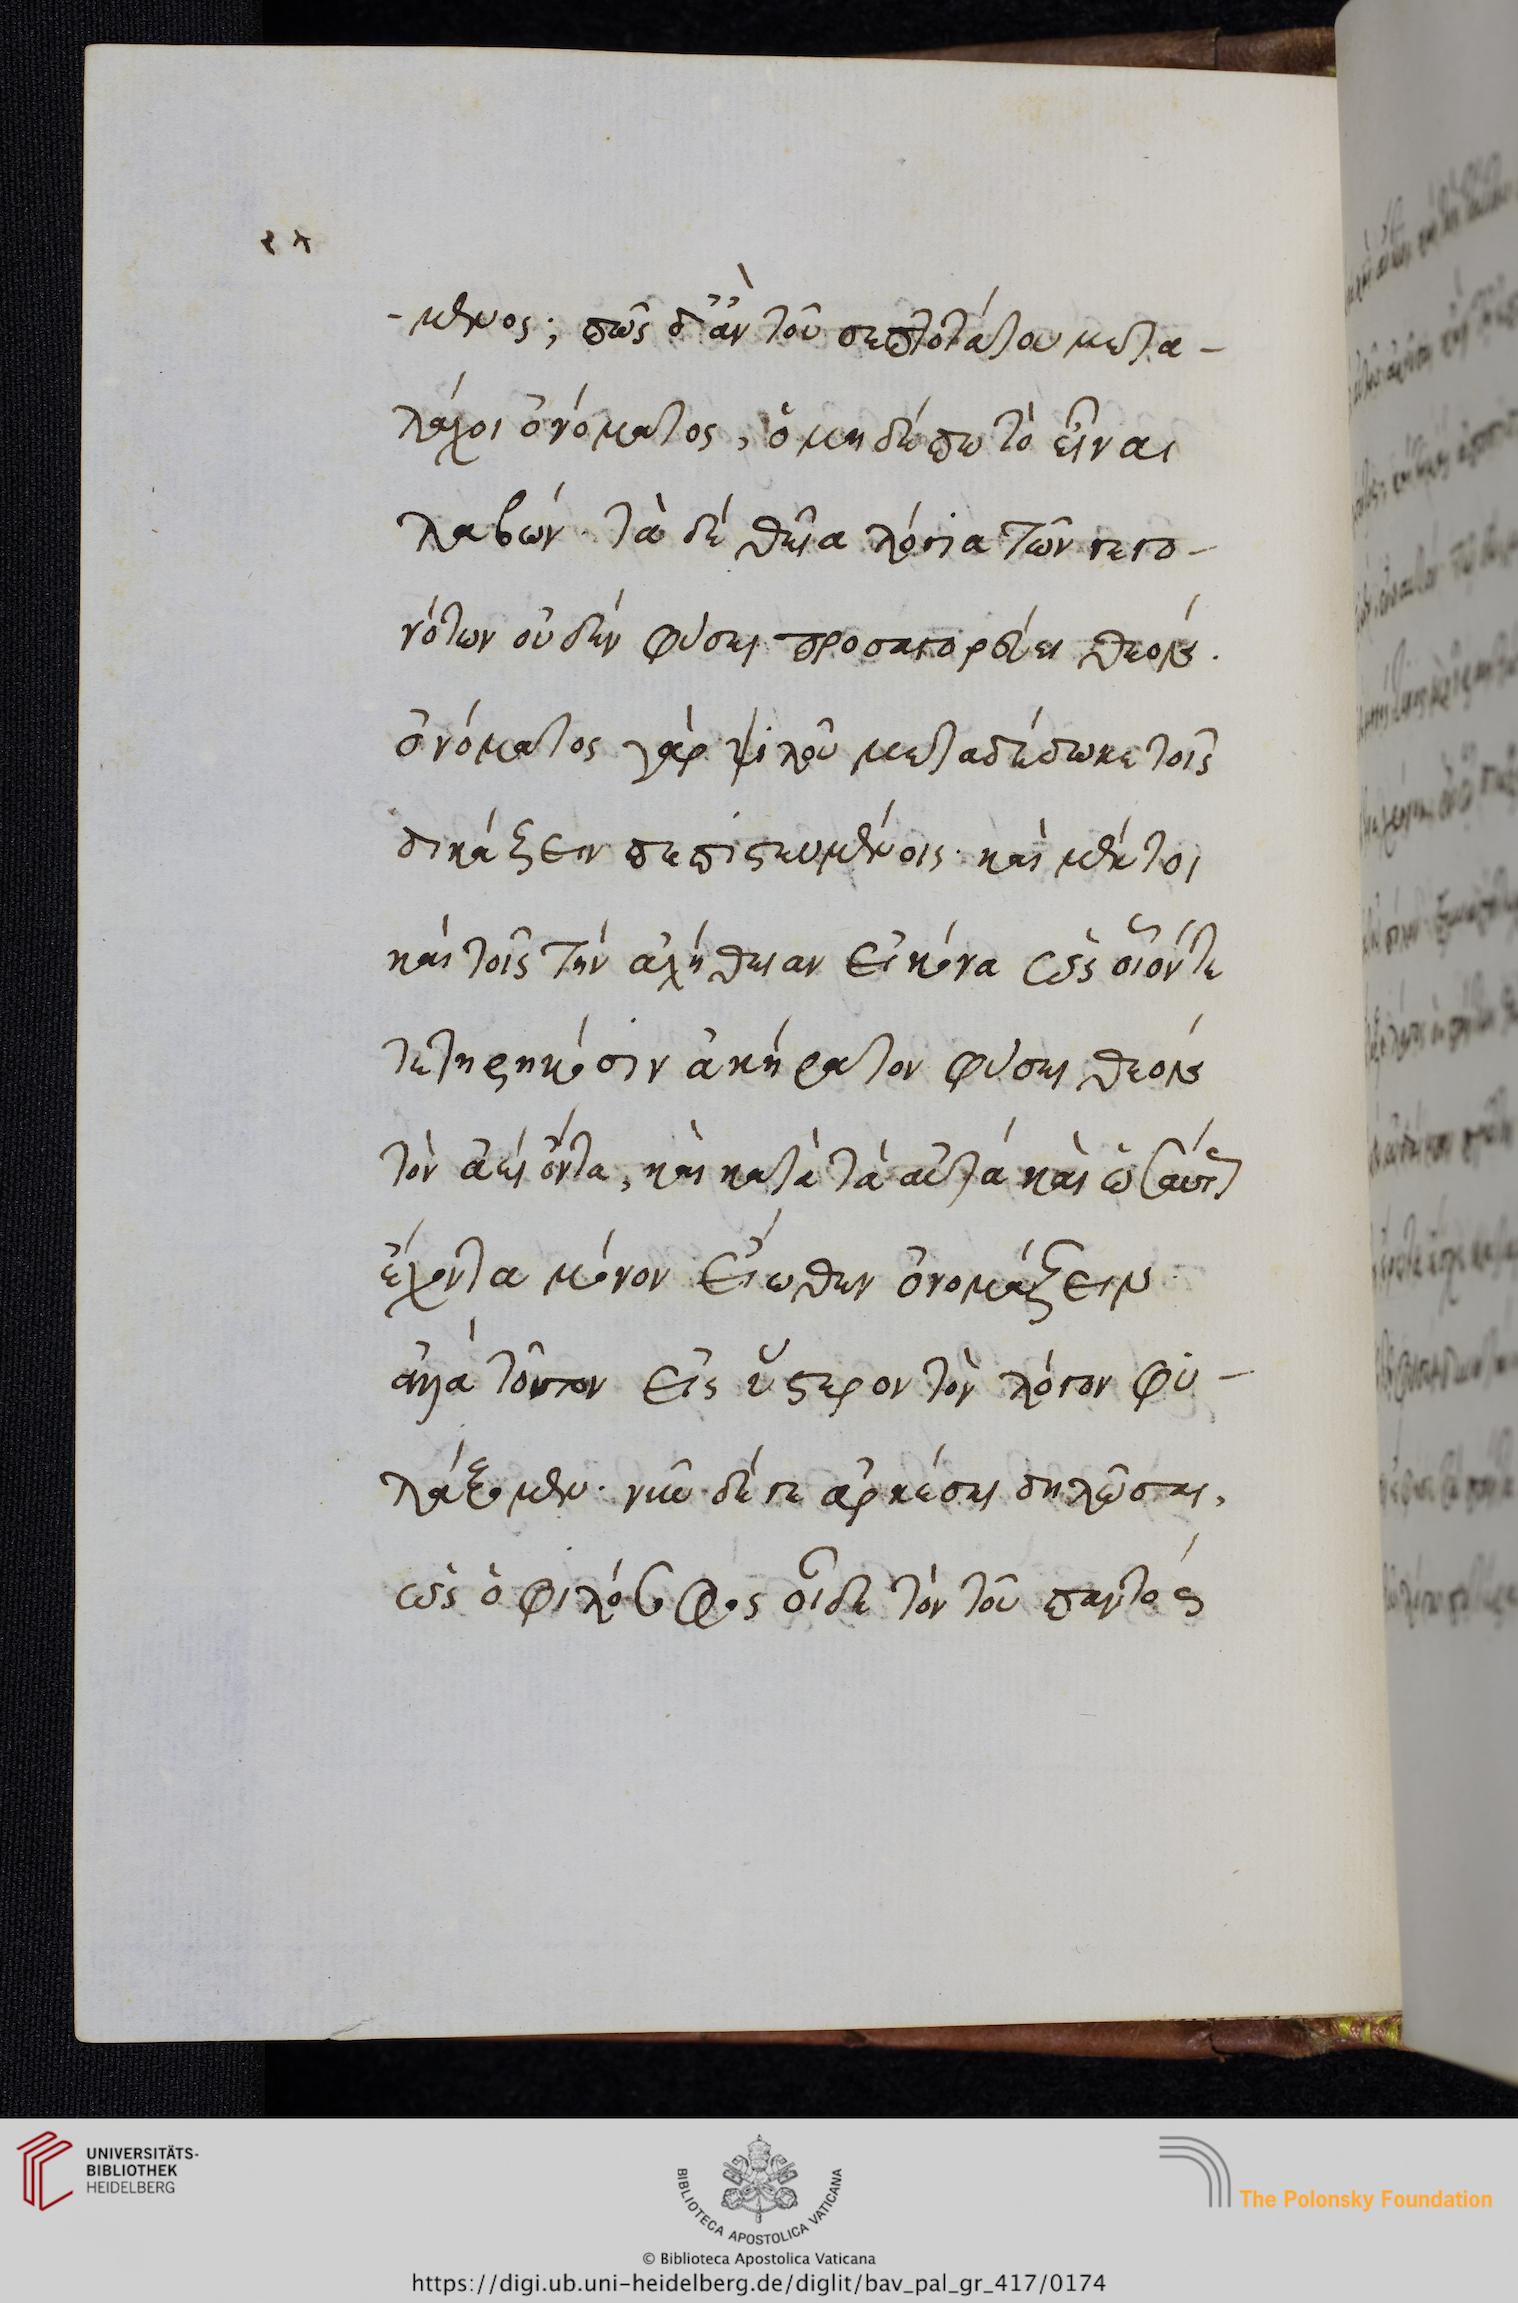 -μενος; πῶς δ' ἂν τοῦ σεπτοτάτου μετα-
λάχοι ὀνόματος, ὁ μηδέπω τὸ εἶναι
λαβών· τὰ δέ θεῖα λόγια τῶν γεγο-
νότων οὐδέν φύσει προσαγορεύει θεούς.
ὀνόματος γάρ ψιλοῦ μεταδέδωκε τοῖς
δικάζειν πεπιστευμένοις· καὶ μέντοι
καὶ τοῖς τήν ἀλήθειαν εἰκόνα ὡς οἷόντε
τετηρηκόσιν ἀκήρατον φύσει θεούς
τὸν ἀεὶ ὄντα, καὶ κατὰ τὰ αὐτά καὶ ὡσαύτως
ἔχοντα μόνον εἴωθεν ὀνομάζειν·
ἀλλά τοῦτον εἰς ὕστερον τὸν λόγον φυ-
λάξομεν· νῦν δέ γε ἀρκέσει δηλῶσαι,
ὡς ὁ φιλόσοφος οἶδε τόν τοῦ παντός
UNIVERSITÄTS-
BIBLIOTHEK
HEIDELBERG
BIBLIOTECA APOSTOLICA VATICANA
The Polonsky Foundation
© Biblioteca Apostolica Vaticana
https://digi.ub.uni-heidelberg.de/diglit/bav_pal_gr_417/0174